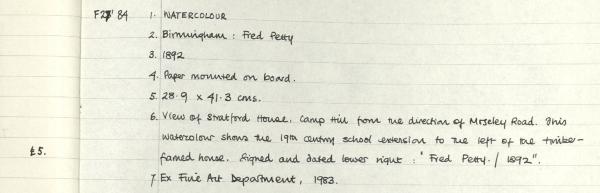 F27' 84 1. WATERCOLOUR
2. Birmingham : Fred Petty
3. 1892
4. Paper mounted on board.
5. 28.9 x 41.3 cms.
6. View of Stratford House, Camp Hill from the direction of Moseley Road. This
watercolour shows the 19th century school extension to the left of the timber-
£5. famed house. Signed and dated lower right : "Fred Petty. / 1892".
7. Ex Fine Art Department, 1983.